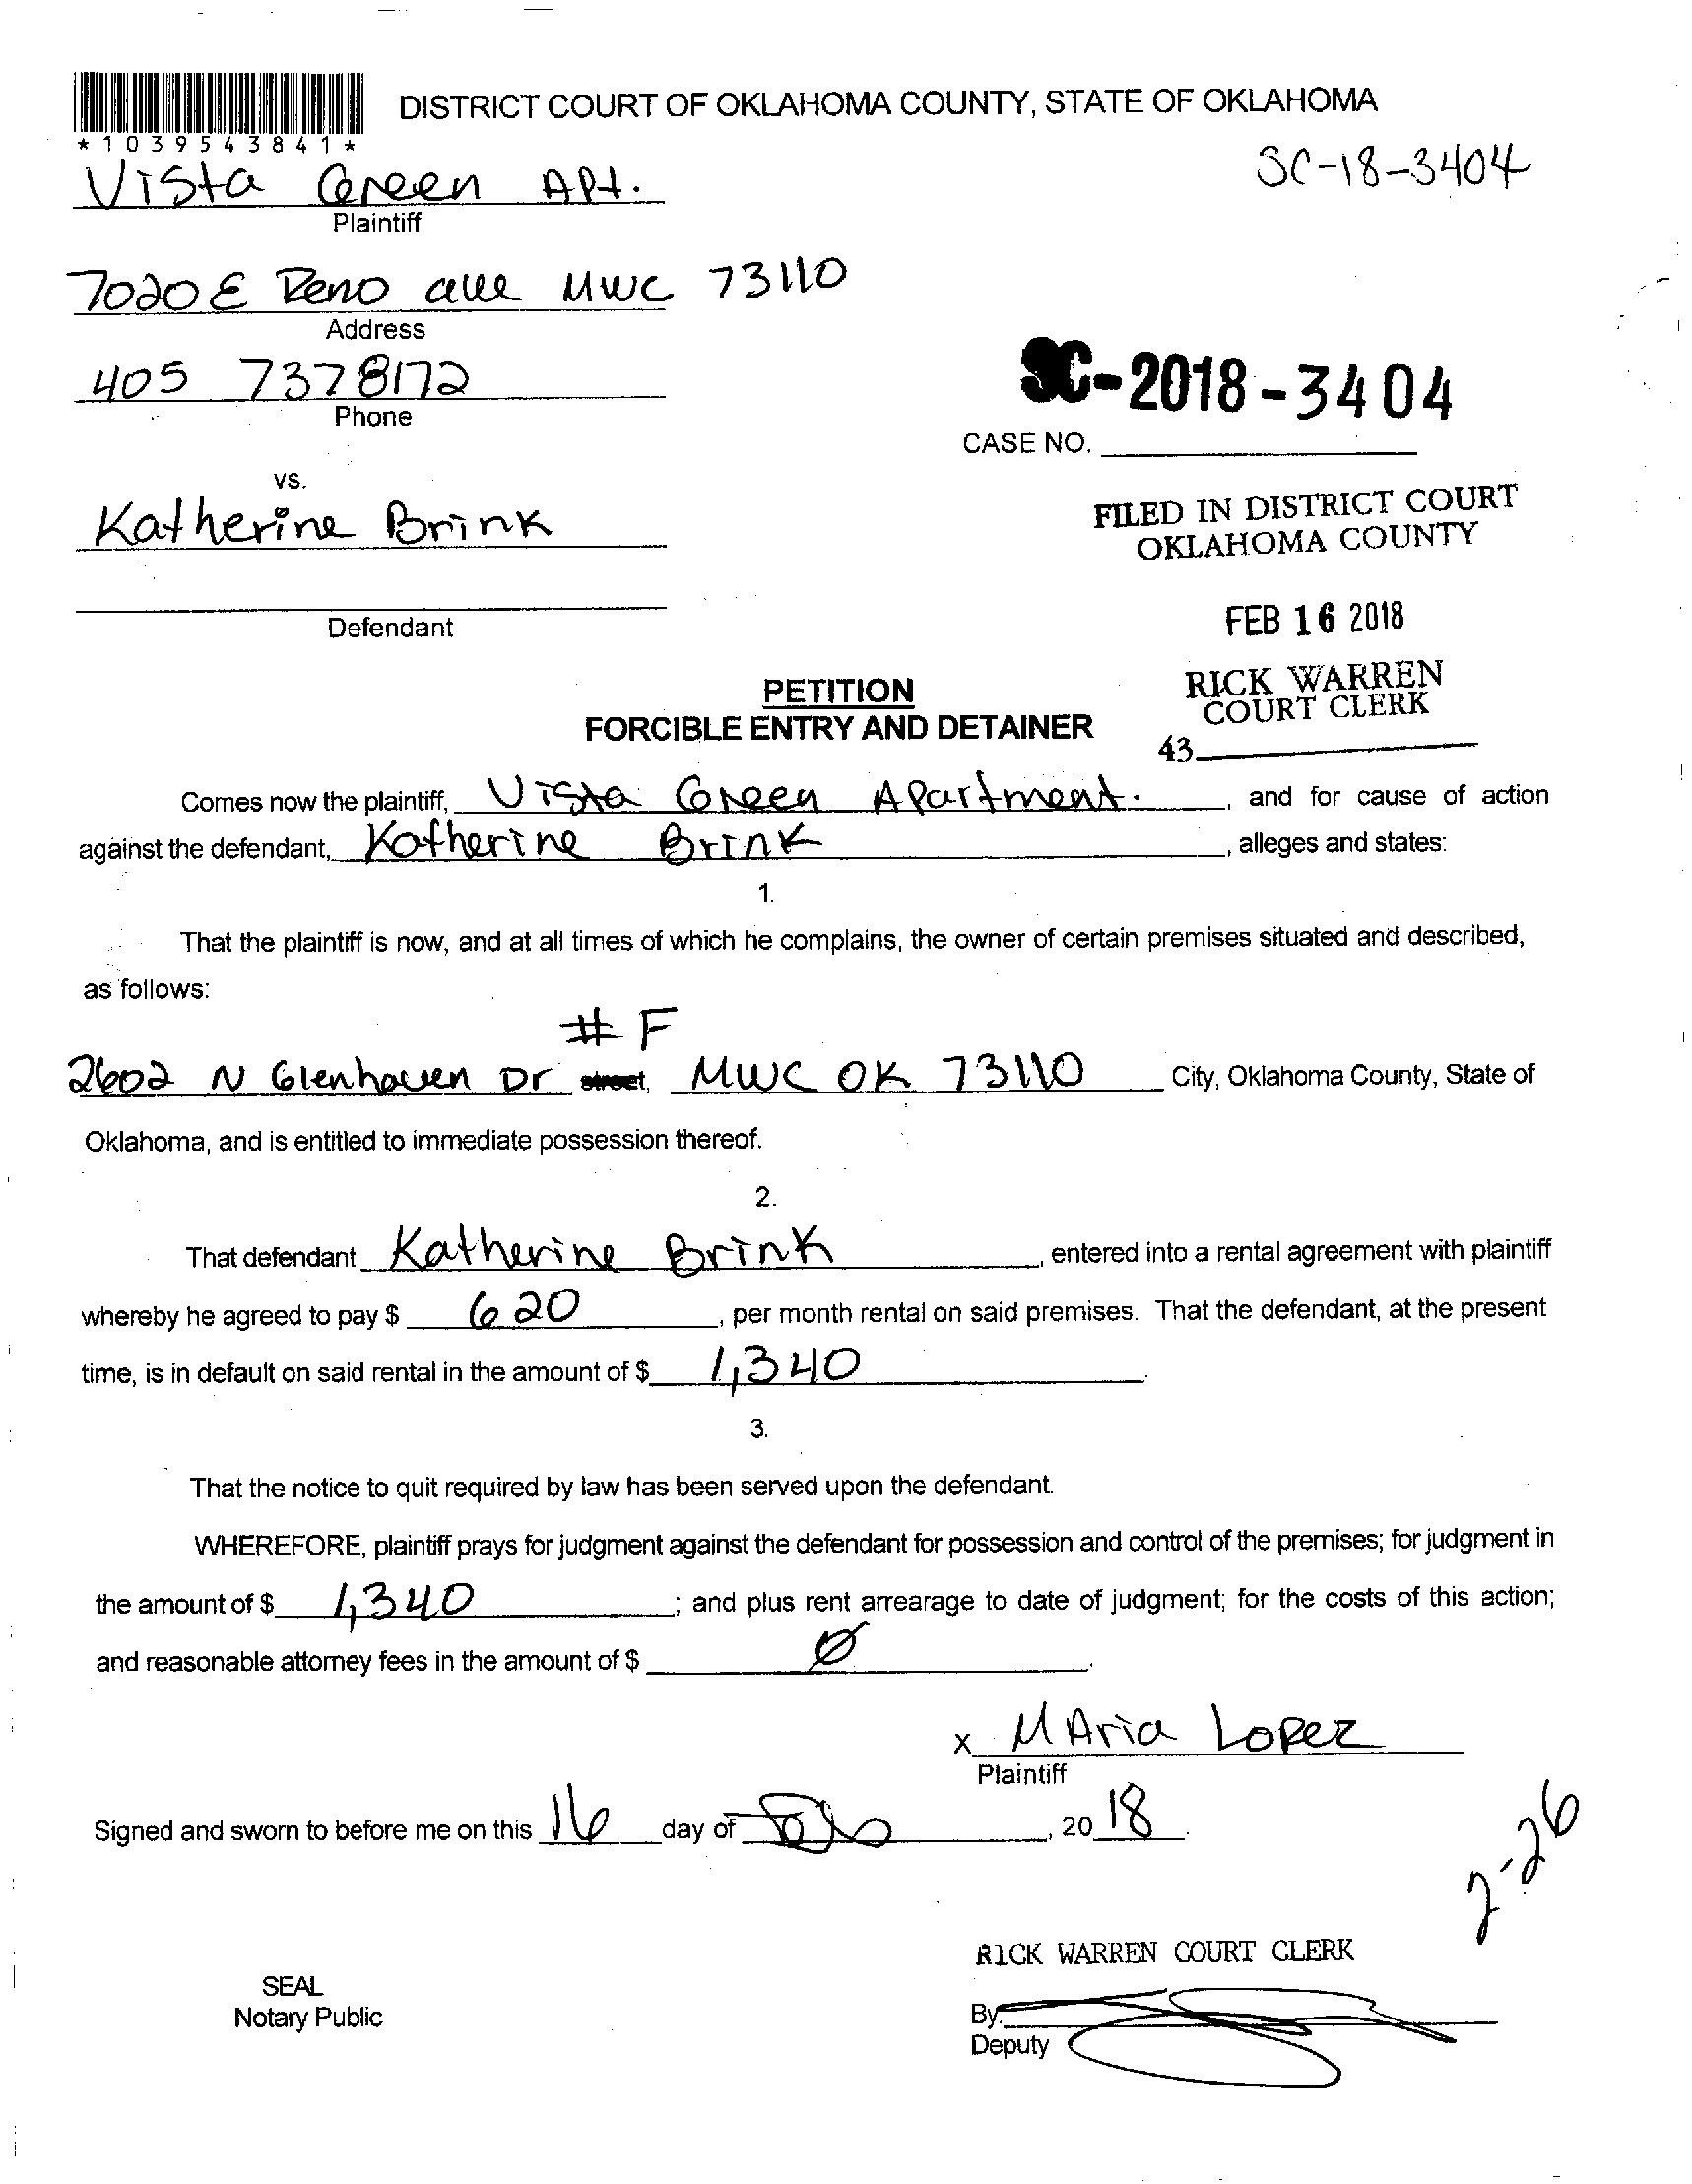 DISTRICT COURT OF OKLAHOMA COUNTY, STATE OF OKLAHOMA
*1039543841*
SC-18-3404
Vista Green APt.
Plaintiff
7020 E Reno ave MWC 73110
Address
405 7378172
Phone
SC-2018-3404
CASE NO.
vs.
Katherine Brink
FILED IN DISTRICT COURT
OKLAHOMA COUNTY
Defendant
FEB 16 2018
RICK WARREN
COURT CLERK
43
PETITION
FORCIBLE ENTRY AND DETAINER
Comes now the plaintiff, Vista Green Apartment. , and for cause of action
against the defendant, Katherine Brink , alleges and states:
1.
That the plaintiff is now, and at all times of which he complains, the owner of certain premises situated and described,
as follows:
# F
2602 N Glenhaven Dr street, MWC OK 73110 City, Oklahoma County, State of
Oklahoma, and is entitled to immediate possession thereof.
2.
That defendant Katherine Brink , entered into a rental agreement with plaintiff
whereby he agreed to pay $ 620 , per month rental on said premises. That the defendant, at the present
time, is in default on said rental in the amount of $ 1,340 .
3.
That the notice to quit required by law has been served upon the defendant.
WHEREFORE, plaintiff prays for judgment against the defendant for possession and control of the premises; for judgment in
the amount of $ 1,340 ; and plus rent arrearage to date of judgment; for the costs of this action;
and reasonable attorney fees in the amount of $ Ø .
x MAria Lopez
Plaintiff
Signed and sworn to before me on this 16 day of , 20 18 .
2-26
RICK WARREN COURT CLERK
SEAL
Notary Public
By
Deputy